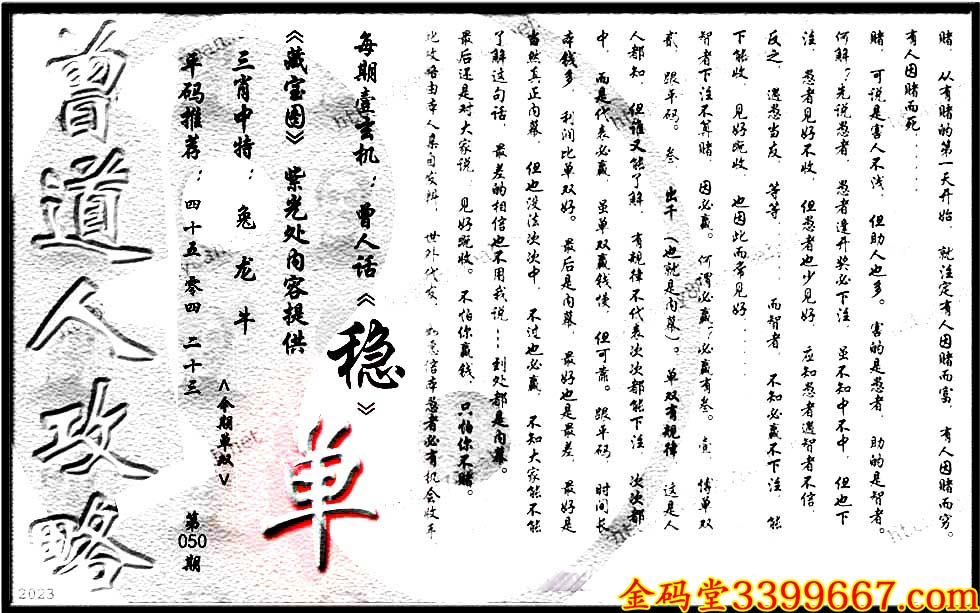 赌. 从有赌的第一天开始. 就注定有人因赌而富. 有人因赌而穷.
有人因赌而死........
赌. 可说是害人不浅. 但助人也多. 害的是愚者. 助的是智者.
何解? 先说愚者. 愚者逢开奖必下注. 虽不知中不中. 但也下
注. 愚者见好不收. 但愚者也少见好. 应知愚者遇智者不信.
反之. 遇愚当友. 等等...... 而智者. 不知必赢不下注. 能
下能收. 见好既收. 也因此而常见好......
智者下注不算赌. 因必赢. 何谓必赢? 必赢有叁. 壹. 博单双
贰. 跟平码. 叁. 出千(也就是内幕). 单双有规律. 这是人
人都知. 但谁又能了解. 有规律不代表次次都能下注. 次次都
中. 而是代表必赢. 虽单双赢钱慢. 但可靠. 跟平码. 时间长
本钱多. 利润比单双好. 最后是内幕. 最好也是最差. 最好是
当然真正内幕. 但也没法次次中. 不过也必赢. 不知大家能不
了解这句话. 最差的相信也不用我说...到处都是内幕。
最后还是对大家说. 见好既收. 不怕你赢钱. 只怕你不赌。
此攻略由本人亲自发辩. 世外代发. 如意信本愚者必有机会收手.
每期壹玄机：曾人话《稳》
《藏宝图》紫光处内容提供
三肖中特：兔 龙 牛
单码推荐：四十五 零四 二十三
<今期单双>
单
第050期
曾道人攻略
2023
金码堂3399667.com